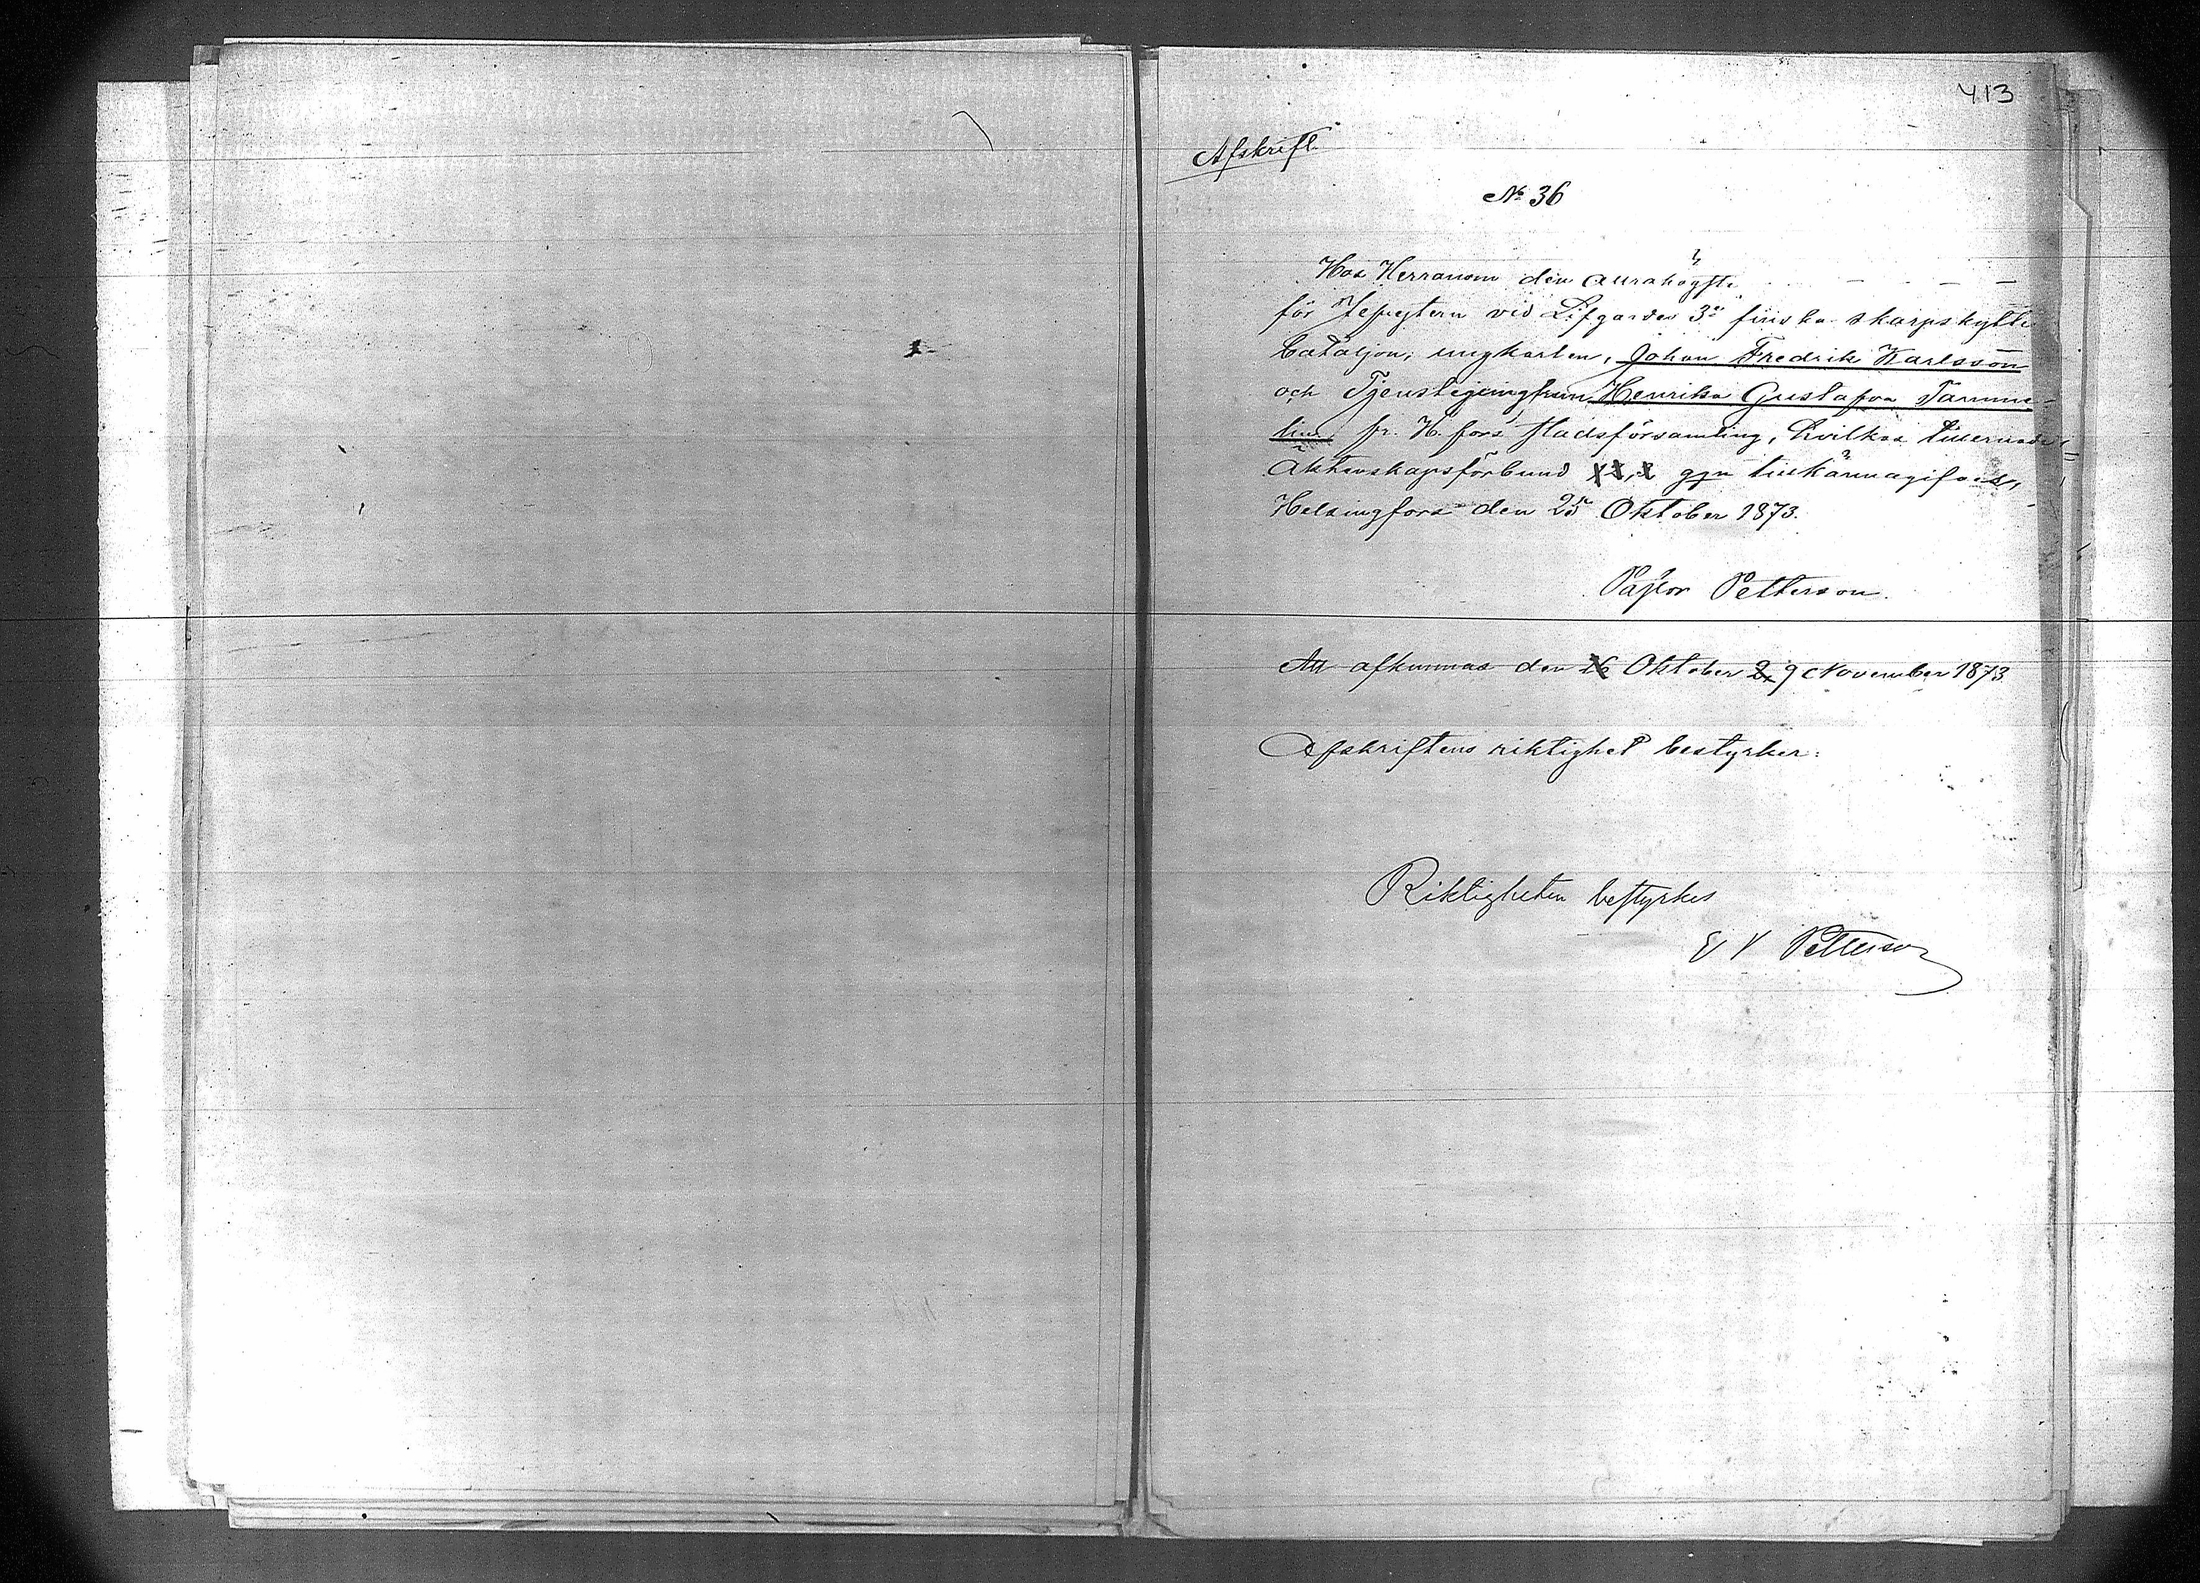 413
Afskrift.
№ 36
Hos Herranom den allrahögste
för Jefrejtern vid Lifgardes 3e finska skarpskytte
bataljon, ungkarlen, Johan Fredrik Karlsson
och Henrika Gustafva Tamme-
lin fr. H. fors stadsförsamling, hvilkas tillernade
äktenskapsförbund ggn tillkännagifves,
Helsingfors den 25 Oktober 1873.
Pastor Petterson.
Att afkunnas den 26 Oktober 2, 9 November 1873
Afskriftens riktighet bestyrker:
Riktigheten bestyrkes
Petterson